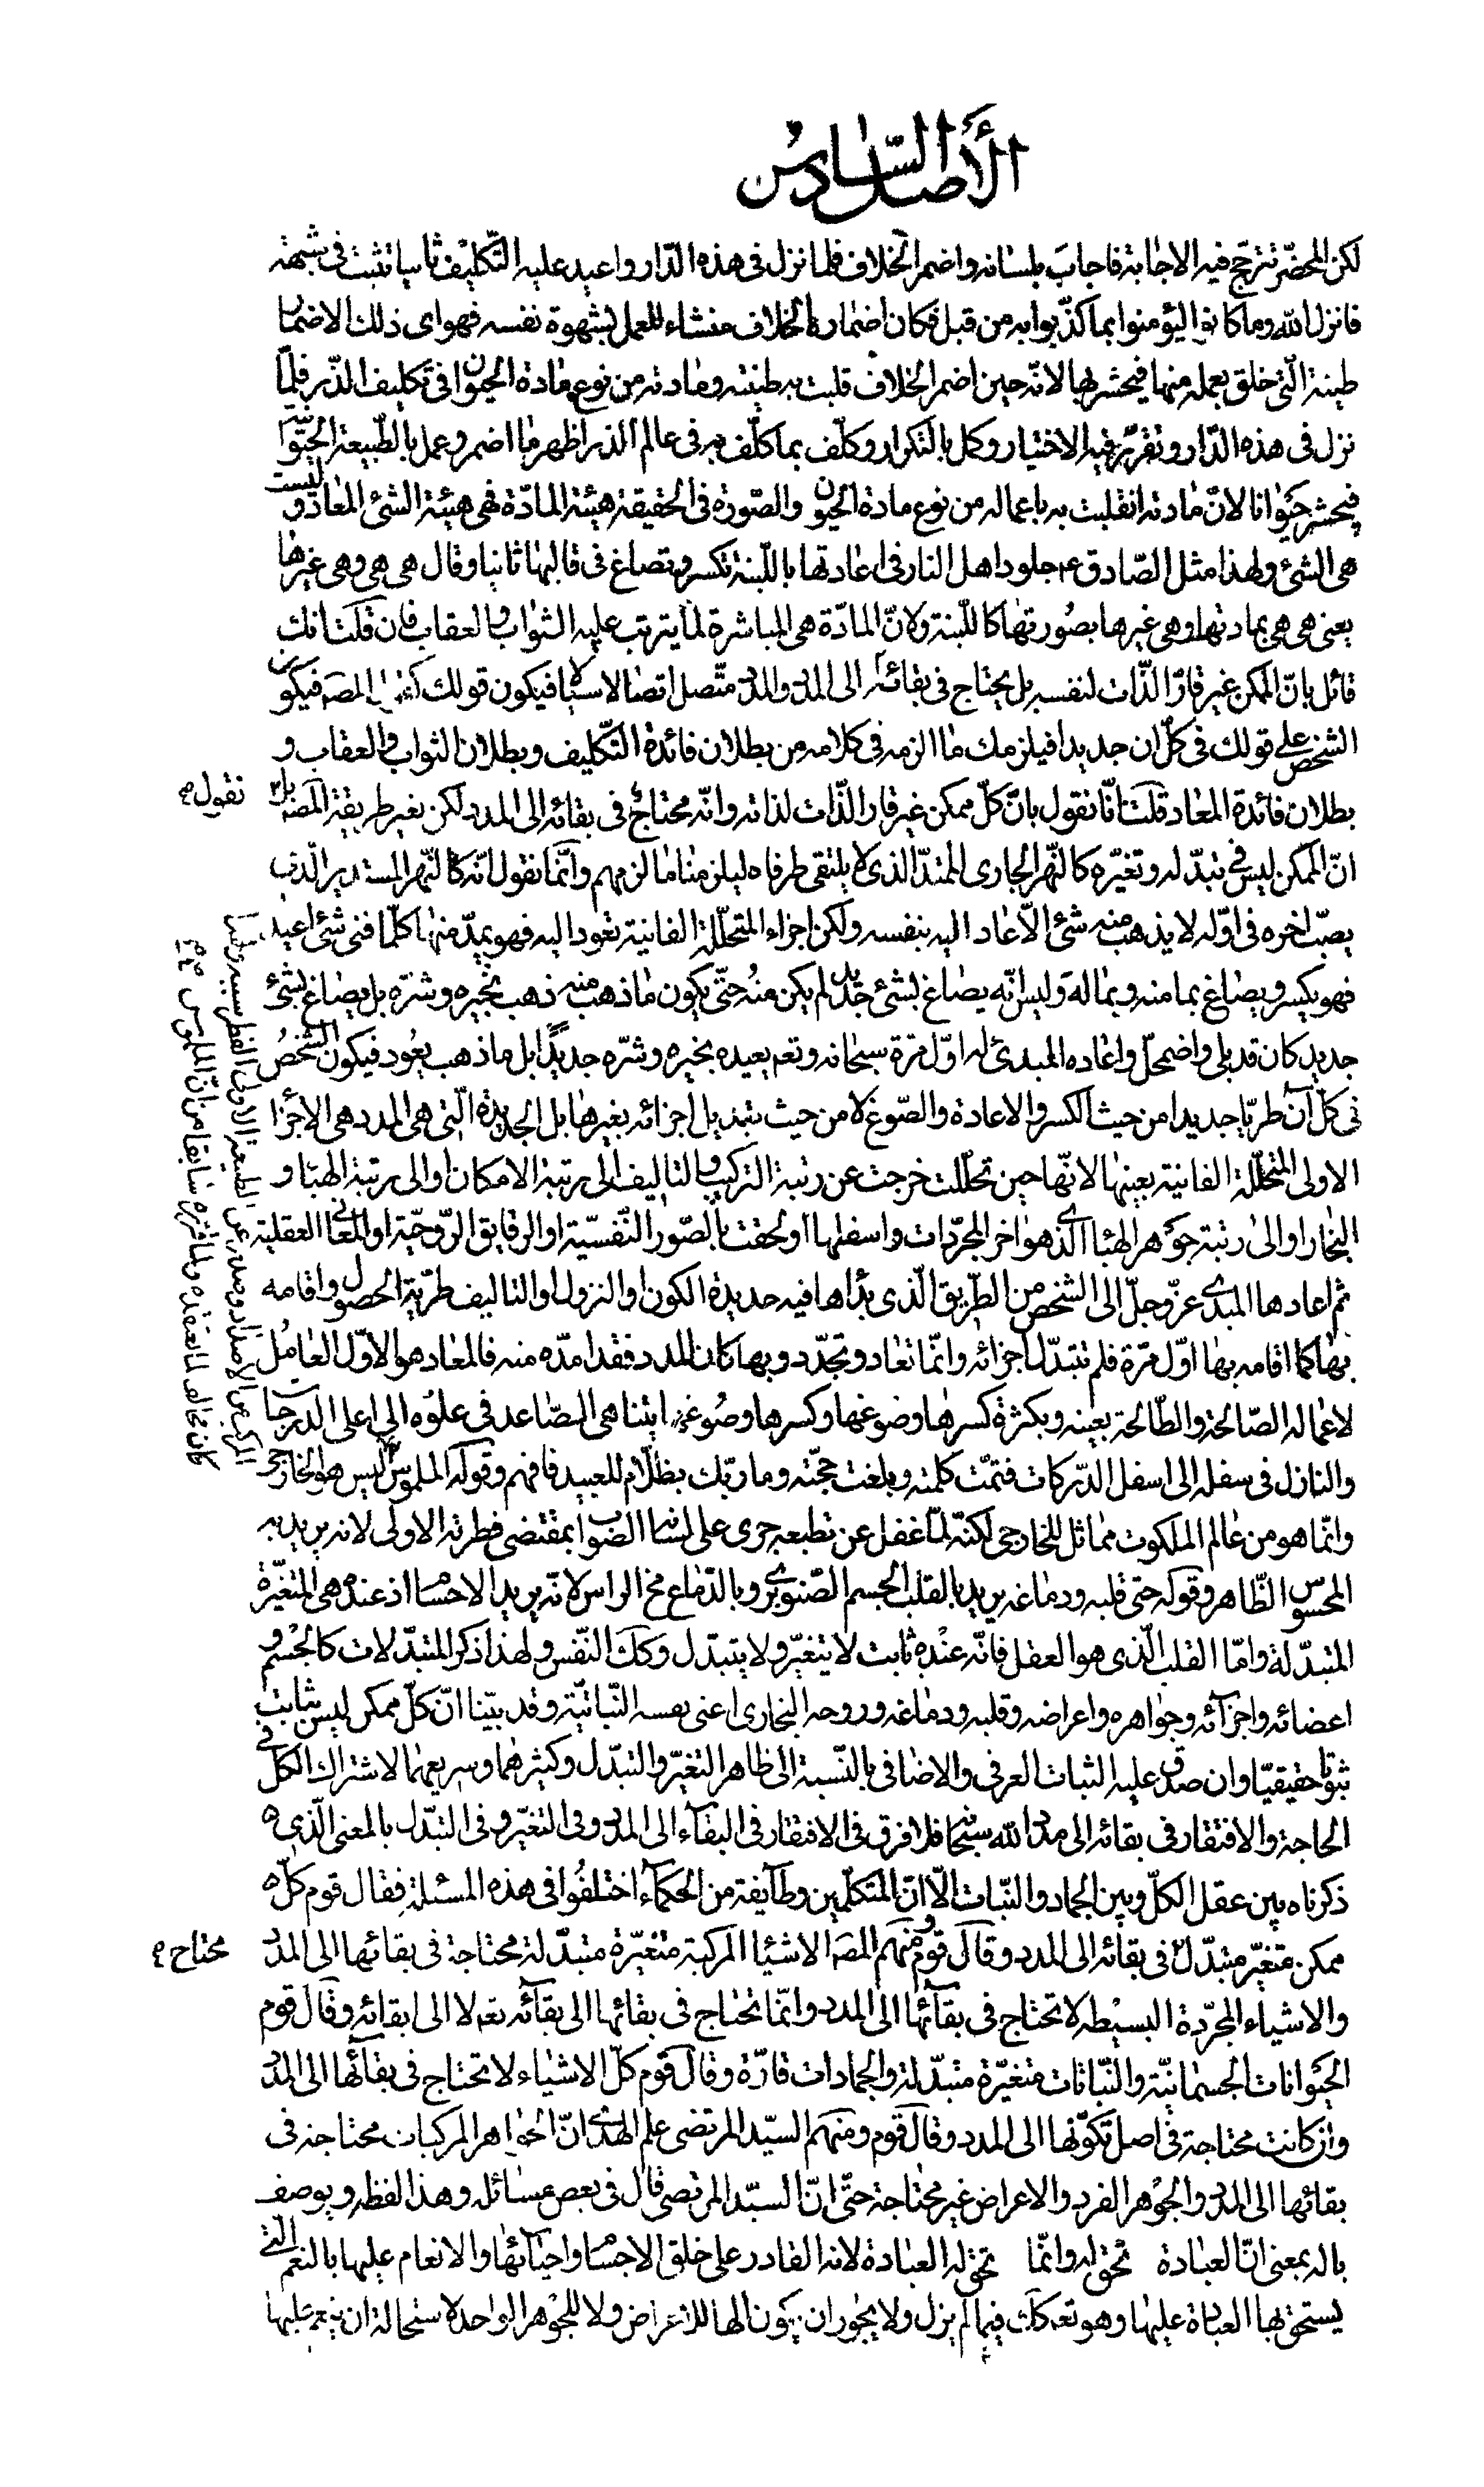 الأصل السّادس
لكن المحضّر تترجّح فيه الاجابة فاجاب بلسانه واضمر الخلاف فلما نزل فى هذه الدّار واعيد عليه التّكليف ثانيا تثبت فى شبهته
فانزل الله وما كانوا ليؤمنوا بما كذّبوا به من قبل فكان اضماره الخلاف منشاء للعمل بشهوة نفسه فهو اى ذلك الاضمار
طينة الّتى خلق بعمله منها فيحشر بها لانّه حين اضمر الخلاف قلبت به طينته ومادته من نوع مادة الحيوان فى تكليف الذّر فلمّا
نزل فى هذه الدّار وتقرّر فيه الاختيار وكل بالتكرار وكلّف بما كلّف به فى عالم الذر اظهر ما اضمر وعمل بالطّبيعة الحيوانيّة
فيحشر حيوانا لانّ مادته انقلبت به باعماله من نوع مادة الحيوان والصّورة فى الحقيقة هيئة المادّة فهى هيئة الشئ المعاد وليست
هى الشئ ولهذا مثل الصّادق ع جلود اهل النار فى اعادتها باللّبنة تكسر وتصاغ فى قالبها ثانيا وقال هى هى وهى غيرها
يعنى هى هى بمادتها وهى غيرها بصورتها كاللّبنة ولانّ المادّة هى المباشرة لما يترتب عليه الثواب والعقاب فان قلت انك
قائل بانّ الممكن غير قارّ الذّات لنفسه بل يحتاج فى بقائه الى المدد والمدد متّصل اتصالا سيّالا فيكون قولك كقول المصّ فيكون
الشخص على قولك فى كلّ ان جديدا فيلزمك ما الزمه فى كلامه من بطلان فائدة التكليف وبطلان الثواب والعقاب و
بطلان فائدة المعاد قلت انّا نقول بانّ كلّ ممكن غير قار الذّات لذاته وانّه محتاج فى بقائه الى المدد لكن بغير طريقة المصّ بل نقول
انّ الممكن ليس فى تبدّله وتغيّره كالنّهر الجارى الممتدّ الذى لا يلتقى طرفاه ليلزمنا ما لزمهم وانّما نقول انّه كالنّهر المستدير الّذى
يصبّ اخره فى اوّله لا يذهب منه شئ الّا عاد اليه بنفسه ولكن اجزاء المتحلّلة الفانية تعود اليه فهو يمدّ منها كلّما فنى شئ اعيد
فهو يكسر ويصاغ بما منه وبما له وليس انّه يصاغ بشئ جديد لم يكن منه حتّى يكون ما ذهب منه ذهب بخيره وشرّه بل يصاغ بشئ
جديد كان قد بلى واضمحلّ واعاده المبدئ له اوّل مرّة سبحانه وتعم يعيده بخيره وشرّه جديدًا بل ما ذهب يعود فيكون الشّخص
فى كلّ آن طريّا جديدا من حيث الكسر والاعادة والصّوغ لا من حيث تبديل اجزائه بغيرها بل الجديدة الّتى هى المدد هى الأجزا
الاولى المتحلّلة الفانية بعينها لانّها حين تحلّلت خرجت عن رتبة التركيب والتاليف الى رتبة الامكان او الى رتبة الهباء و
البخار او الى رتبة جوهر الهباء الّذى هو اخر المجرّدات واسفلها او لحقت بالصّور النّفسيّة او الرقايق الرّوحيّة او المعانى العقلية
ثم اعادها المبدئ عزّ وجلّ الى الشخص من الطّريق الّذى بدأها فيه جديدة الكون او النزول او التاليف طريّة الحصول واقامه
بها كما اقامه بها اوّل مرّة فلم تتبدّل اجزائه وانّما تعاد وتجدّد وبها كان المدد فقد امدّه منه فالمعاد هو الاوّل العامل
لاعماله الصّالحة والطّالحة بعينه وبكثرة كسرها وصوغها وكسرها وصوغها يتناهى الصّاعد فى علوّه الى اعلى الدرجات
والنازل فى سفله الى اسفل الدّركات فتمّت كلمته وبلغت حجّته وما ربّك بظلّام للعبيد فافهم وقوله الملموس ليس هو الخارجى
وانّما هو من عالم الملكوت مماثل للخارجى لكنّه لمّا غفل عن تطبعه جرى على لسانه الصّواب بمقتضى فطرته الاولى لانه يريد به
المحسوس الظّاهر وقوله حتّى قلبه ودماغه يريد بالقلب الجسم الصّنوبرى وبالدّماغ مخ الراس لانّه يريد الاجسام اذ عنده هى المتغيّرة
المتبدّلة وامّا القلب الّذى هو العقل فانّه عنده ثابت لا يتغيّر ولا يتبدّل وكك النّفس ولهذا ذكر المتبدّلات كالجسم و
اعضائه واجزائه وجواهره واعراضه وقلبه ودماغه وروحه البخارى اعنى نفسه النّباتيّة وقد بيّنا انّ كلّ ممكن ليس بثابت
ثبوتا حقيقيّا وان صدق عليه الثبات العرفى والاضافى بالنّسبة الى ظاهر التغيّر والتبدّل وكثيرهما وسريعهما لاشتراك الكلّ فى
الحاجة والافتقار فى بقائه الى مدد الله سبحانه فلا فرق فى الافتقار فى البقاء الى المدد وفى التغيّر وفى التبدّل بالمعنى الّذى
ذكرناه بين عقل الكلّ وبين الجماد والنّبات الّا انّ المتكلّمين وطآيفة من الحكمآء اختلفوا فى هذه المسئلة فقال قوم كلّ
ممكن متغيّر متبدّل محتاج فى بقائه الى المدد وقال قوم ومنهم المصّ الاشياء المركبة متغيّرة متبدّلة محتاجة فى بقائها الى المدد
والاشياء المجرّدة البسيطه لا تحتاج فى بقآئها الى المدد وانّما تحتاج فى بقائها الى بقآئه تعه لا الى ابقائه وقال قوم
الحيوانات الجسمانيّة والنّباتات متغيّرة متبدّلة والجمادات قارّة وقال قوم كلّ الاشياء لا تحتاج فى بقآئها الى المدد
وان كانت محتاجة فى اصل تكوّنها الى المدد وقال قوم ومنهم السيّد المرتضى علم الهدى انّ الجواهر المركبات محتاجة فى
بقائها الى المدد والجوهر الفرد والاعراض غير محتاجة حتّى انّ السيّد المرتضى قال فى بعض مسائله وهذا لفظه ويوصف
باله بمعنى انّ العبادة تحقّ له وانّما تحقّ له العبادة لانه القادر على خلق الاجسام واحيائها والانعام عليها بالنعم الّتى
يستحقّ بها العبادة عليها وهو تعه كك فيما لم يزل ولا يجوز ان يكون الها للاعراض ولا للجوهر الواحد لاستحالة ان ينعم عليها